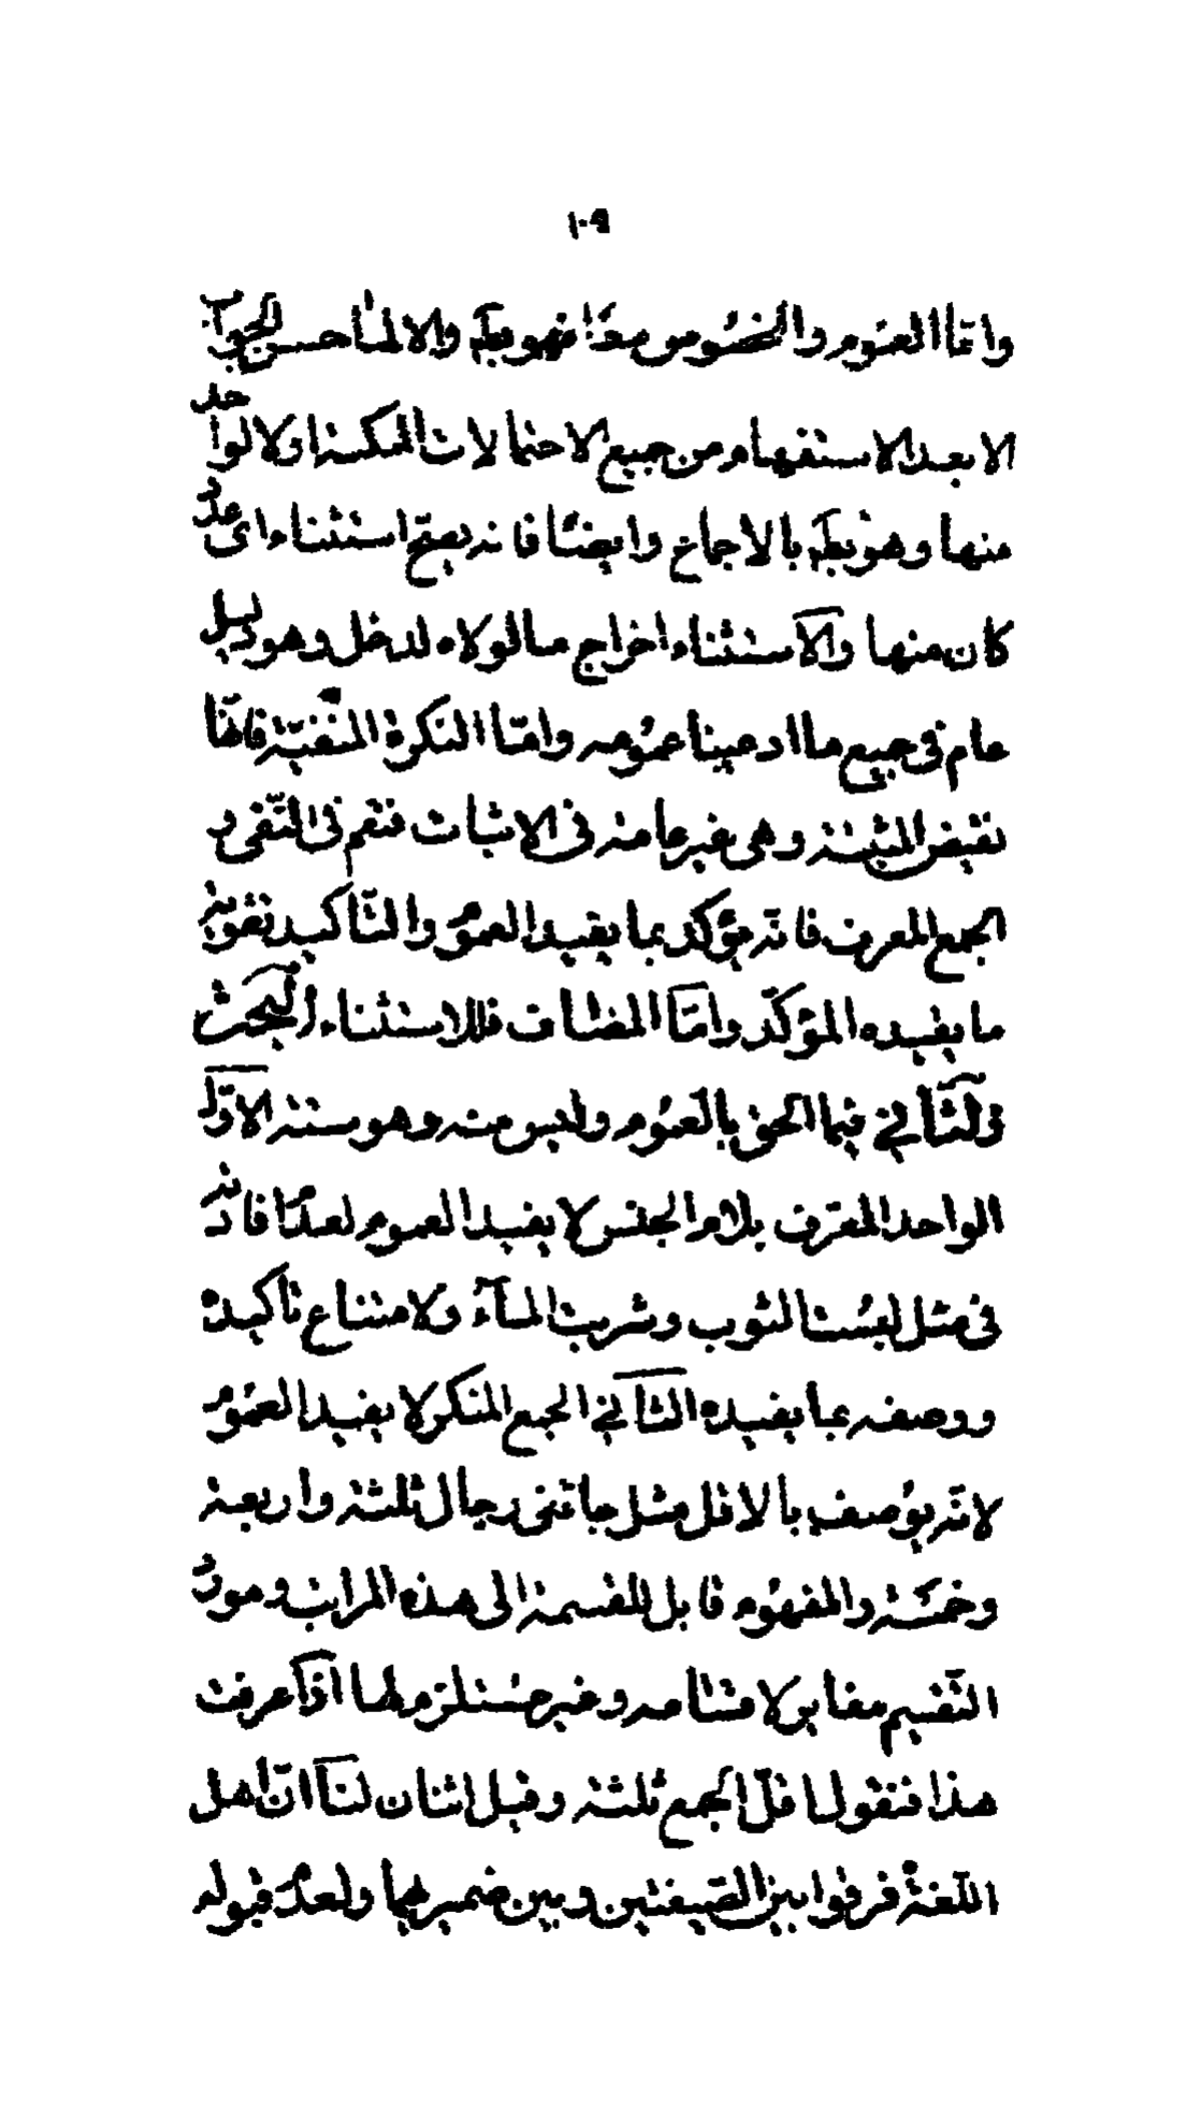 ١٠٩
واما العموم والخصوص معا فهو بط والا لما حسن الجواب
الا بعد الاستفهام من جميع الاحتمالات الممكنة او لا لواحد
منها وهو بط بالاجماع وايضا فانه يصح استثناء اى عدد
كان منها والاستثناء اخراج ما لولاه لدخل وهو دليل
عام فى جميع ما ادعينا عمومه وامّا النكرة المنفيّة فانها
نقيض المثبتة وهى غير عامة فى الاثبات فتعم فى النّفى و
الجمع المعرف فانّه يؤكد بما يفيد العموم والتّاكيد تقوية
ما يفيده المؤكّد وامّا المضاف فللاستثناء البحث
الثّانى فيما الحق بالعموم وليس منه وهو ستة الاوّل
الواحد المعرف بلام الجنس لا يفيد العموم لعدم افادته
فى مثل لبست الثوب وشربت المآء ولامتناع تاكيده
ووصفه بما يفيده الثّانى الجمع المنكر لا يفيد العموم
لانّه يوصف بالاقل مثل جائنى رجال ثلثة واربعة
وخمسة والمفهوم قابل للقسمة الى هذه المراتب ومورد
التّقسيم مغاير لاقسامه وغير مستلزم لها اذا عرفت
هذا فنقول اقلّ الجمع ثلثة وقيل اثنان لنا انّ اهل
اللّغة فرقوا بين الصّيغتين وبين ضميريهما ولعدم قبوله